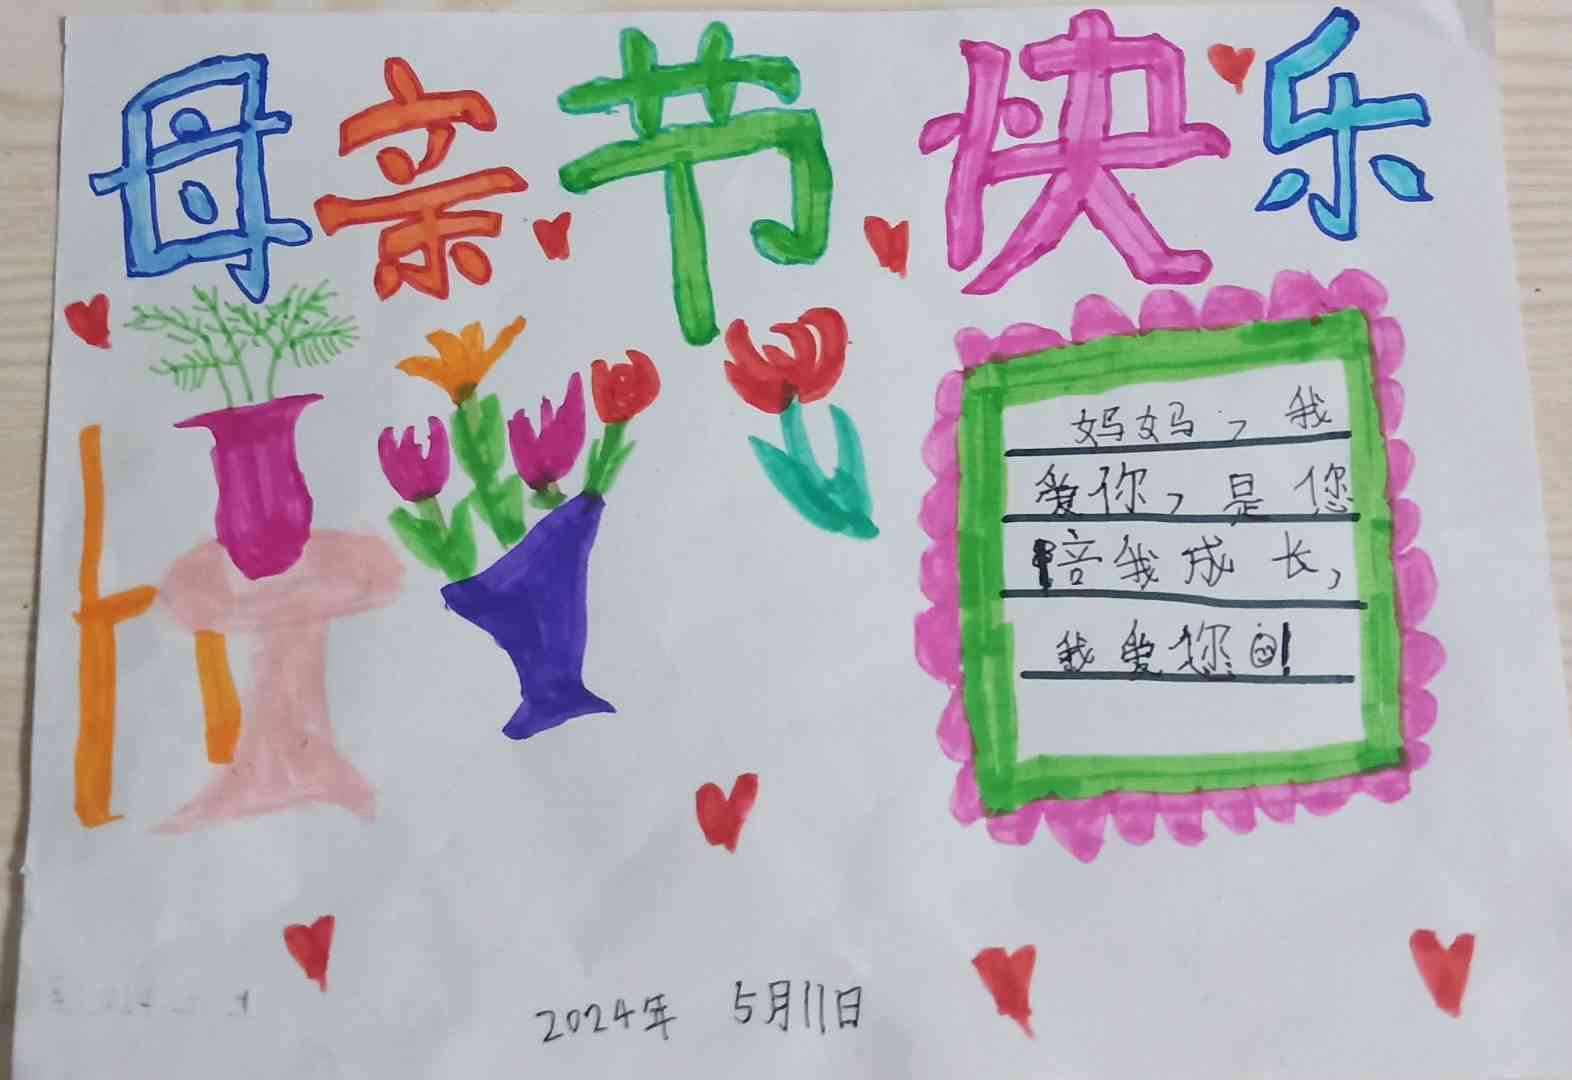 母亲节快乐
妈妈，我
爱你，是您
陪我成长，
我爱您！
2024年 5月11日